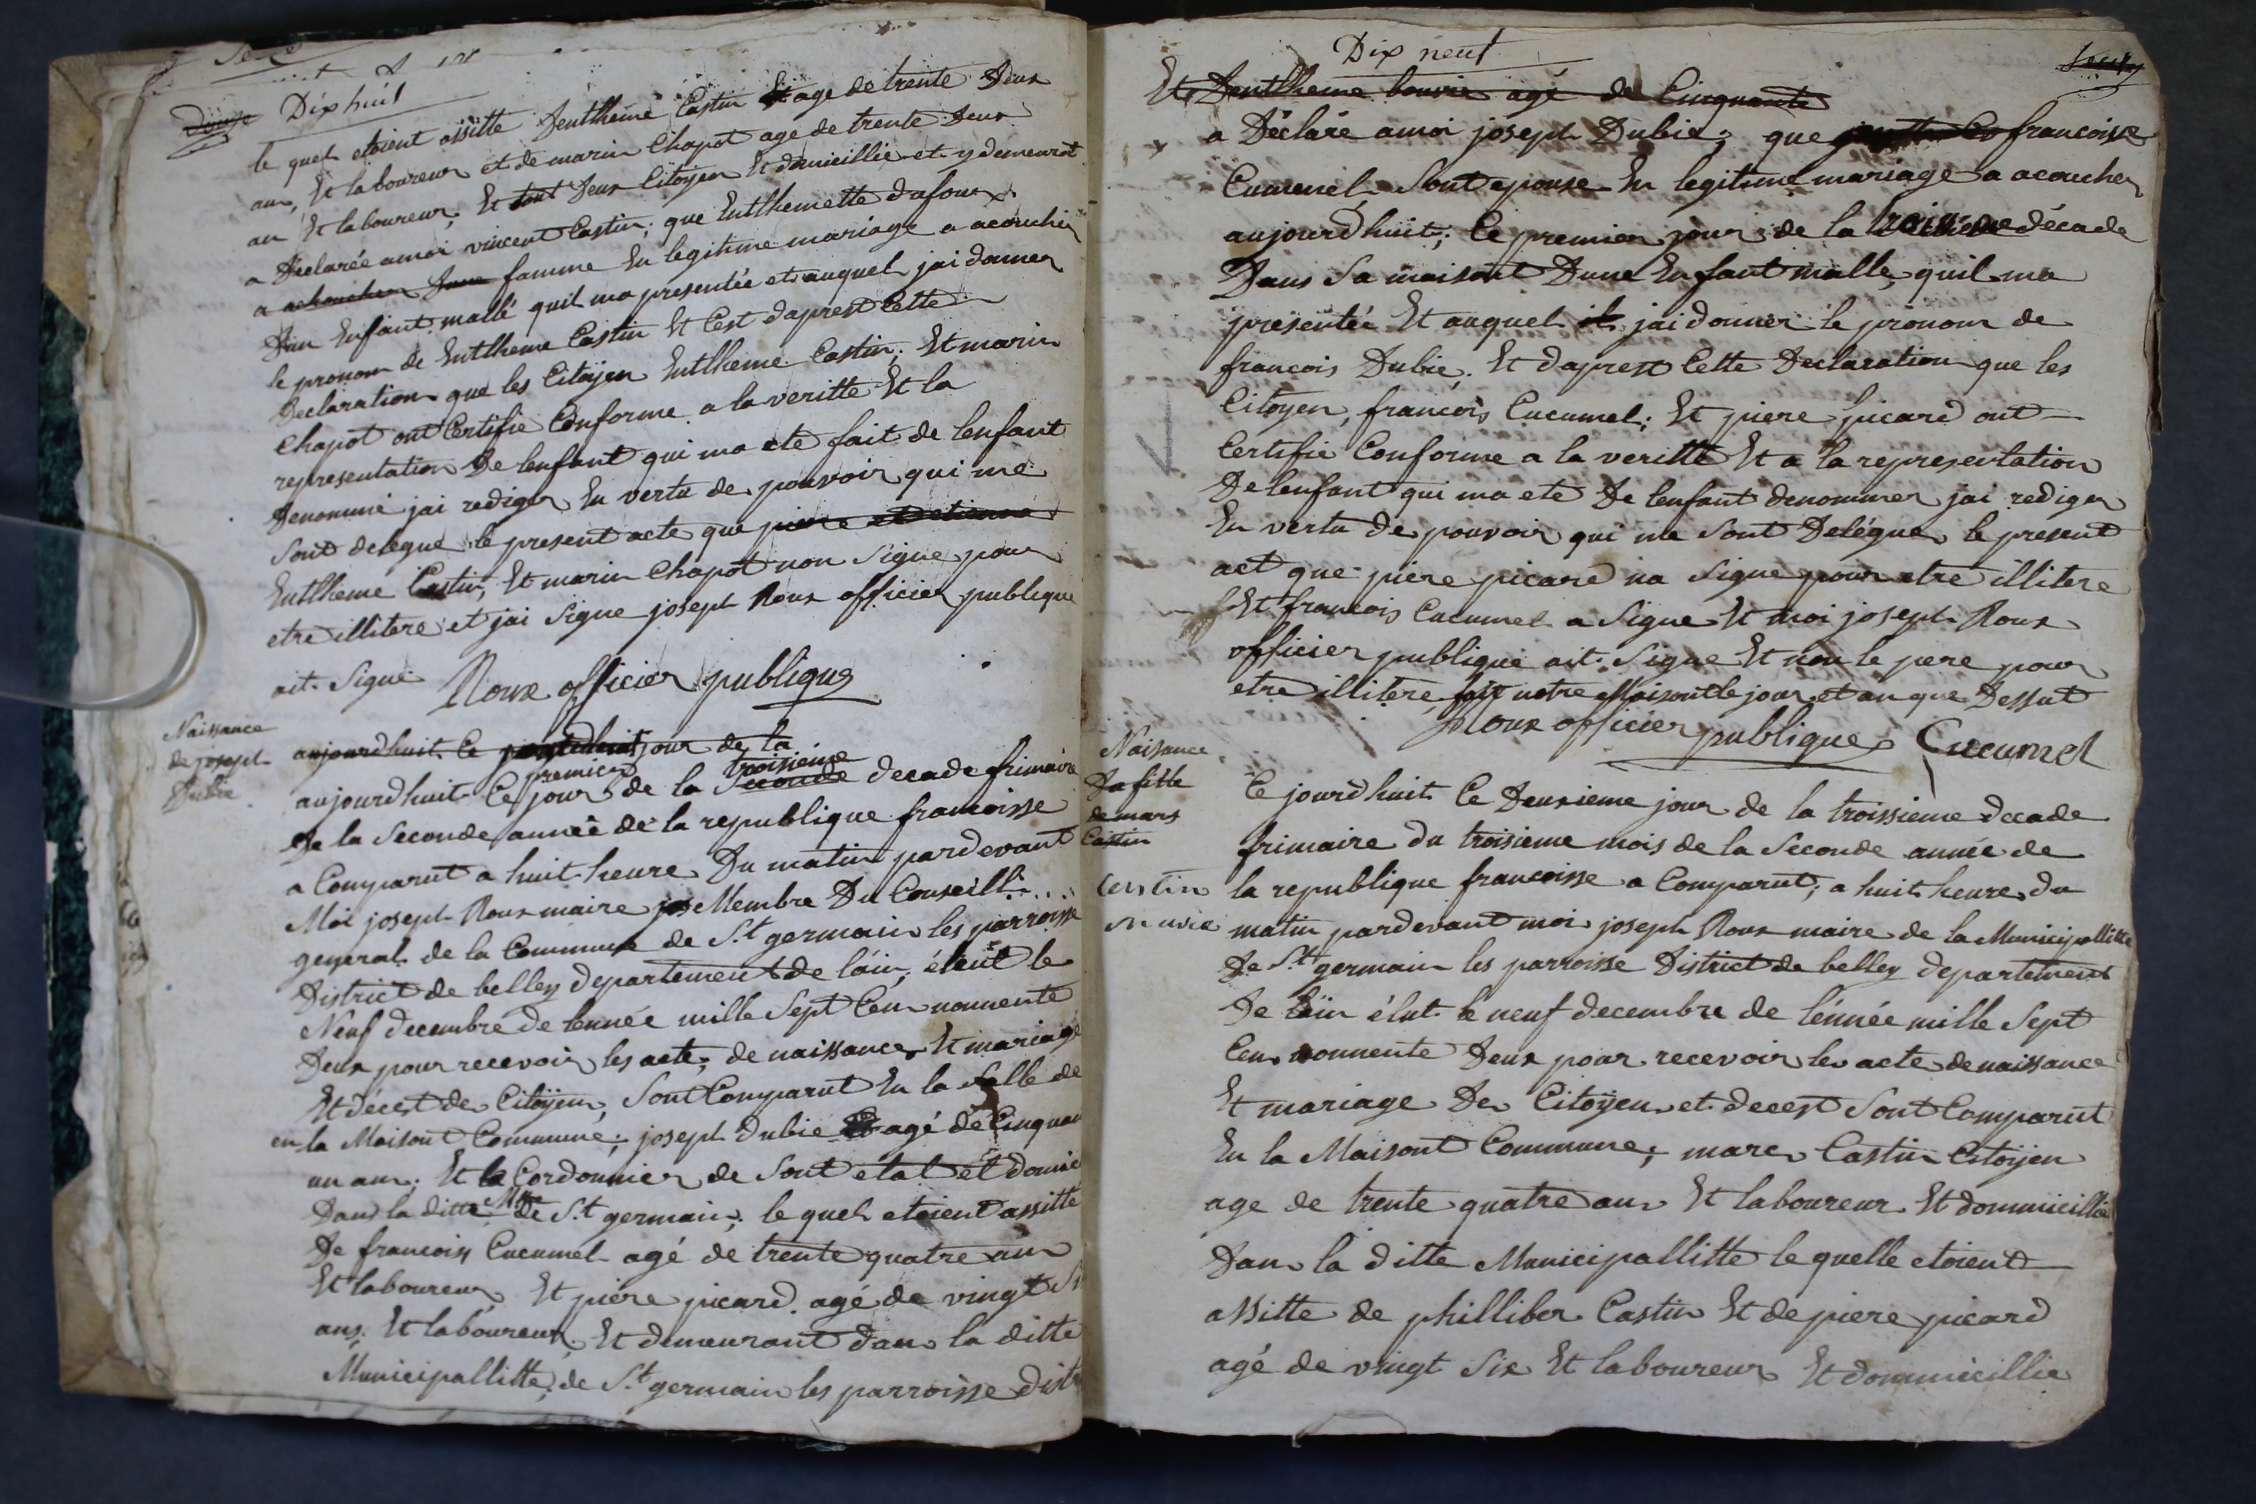 Dix huit
le quel etoient assitte Dentlheme Castin agé de trente Deux
an, Et laboureur et de marin Chapot age de trente Deux
an Et laboureur, Et tout Deux Citoyen Et domicillié et y demeurat
a Déclarée amoi vincent Castin; que Entlhemette dufour
a famme En legitime mariage a acoucher
Dun Enfant mallé quil ma presentée et auquel jai donner
le pronom de Entlheme Castin Et Cest daprest Cette
Declaration que les Citoyen Entlheme Castin; Et marin
Chapot ont Certifie Conforme a la veritte Et la
representation De lenfant qui ma ete fait de lenfant
Denommé jai rediger En vertu de pouvoir qui me
Sont delegué le present acte que piere et etienne
Entlheme Castin, Et marin Chapot non Signe pour
etre illitere et jai Signe joseph Roux officier publique
ait Signé Roux officier publique
Naissance
de joseph
Dubie
aujourdhuit Ce jour de la
premier troisieme
aujourdhuit Ce jour de la Seconde decade frimaire
De la Seconde année de la republique francoisse
a Comparut a huit heure Du matin pardevant
Moi joseph Roux maire Membre Du Conseill
general de la Commune de S.t germain les parroisse
District de belley departement de láin, éleut le
Neuf decembre de lennée mille Sept Cen nonnente
Deux pour recevoir les acte, de naissance Et mariage
Et décest de Citöyen, Sont Comparut En la Salle de
en la Maisont Commune; joseph dubie agé de Cinquan
un an; Et Cordonnier de Sont état et domic
Dans la ditte de S.t germain; le quel etoient assitté
De francois Cucumel agé de trente quatre an
Et laboureur Et piére picard agé de vingt Si
ans Et laboureur, Et demeurant dans la ditte
Municipallitte, de S.t germain les parroisse distr
Dix neuf
Et Dentlheme bouvie agé de Cinquante
a Déclaré amoi joseph Dubie; que francoise
Cucumel Sont epouse En legitime mariage a acoucher
aujourdhuit; Ce premier jour de la troisieme décade
Dans Sa maisont Dune Enfant malle, quil ma
presentée Et auquel il jai donner le pronom de
francois Dubie, Et daprest Cette Declaration que les
Citoyen, francois Cucumel; Et piere picard ont
Certifie Conforme a la veritte Et a la representation
De lenfant qui ma ete De lenfant denommer jai rediger
En vertu de pouvoir qui me Sont Delégué le present
act que piere picard na Signe pour etre illitere
Et francois Cucumel a Signe Et moi joseph Roux
officier publique ait Signe Et non le pere pour
etre illitere, fait notre Maisont le jour et an que Dessut
Roux officier publique Cucumel
Naisance
Du fille
de mars
Castin
Castin
Ce jourdhuit Ce Deuxieme jour de la troissieme decade
frimaire du troisieme mois de la Seconde année de
la republique francoisse a Comparut; a huit heure du
matin pardevant moi joseph Roux maire de la Municipallitte
De S.t germain les parroisse District de belley departement
De léin élut le neuf decembre de lénnée mille Sept
Cen nonnente Deux pour recevoir les acte de naissance
Et mariage De Citoyen et decest Sont Comparut
En la Maisont Commune; marc Castin Citoyen
age de trente quatre an Et laboureur Et dommicillié
Dans la ditte Municipallitte le quelle etoient
assitte de philliber Castin Et de piere picard
agé de vingt Six Et laboureur Et dommicillie